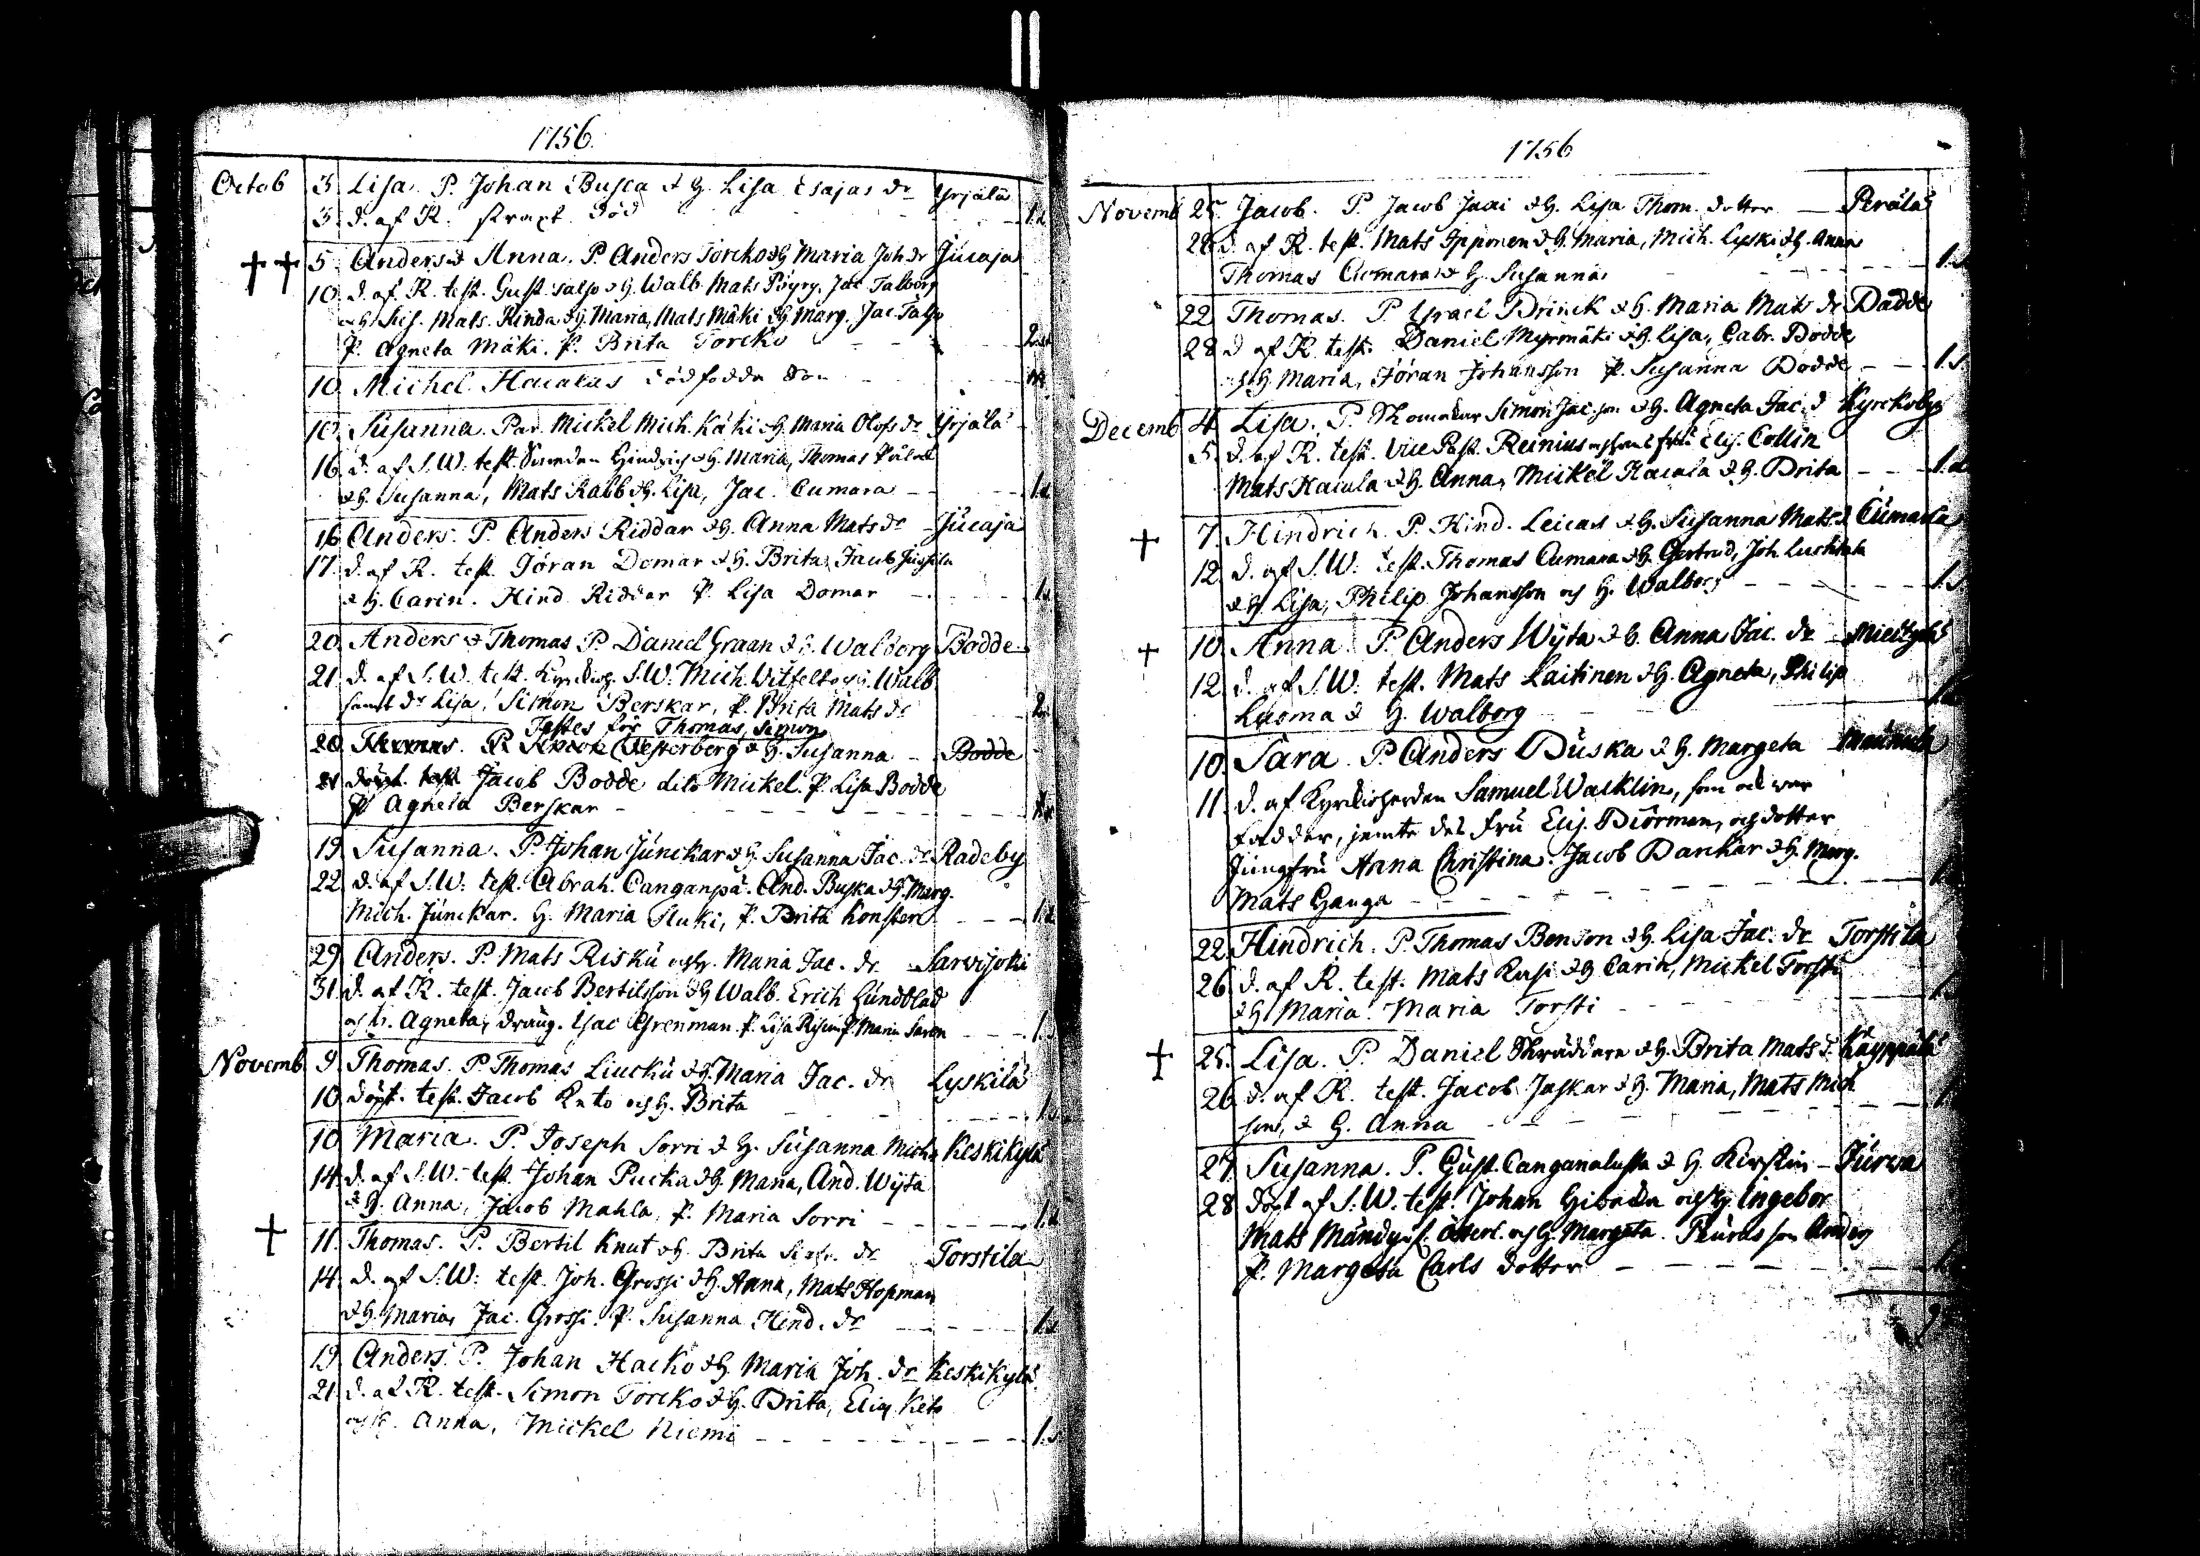 1756.
Octob 3. Lisa. P. Johan Busca & H. Lisa Esajas dr Yrjälä
3. d. af R. straxt död 1.d
5. Anders & Anna. P. Anders Torcko & H Maria Joh dr Jucaja
10. d. af R. test. Gust. Salpo & H. Walb. Mats Pöyry. Jac Talborg
Mats Rinda & H. Maria, Mats Mäki & H Marg. Jac. Talpo
P. Agneta Mäki. P. Brita Torcko
10. Michel Hacalas dödfödde Son
10. Susanna. Par. Mickel Mich. Käki & H. Maria Olofs dr Yrjälä
16. d. af S.W. test. Hindrich & H. Maria, Thomas
& H. Susanna, Mats Rabb & H. Lisa, Jac. Cumara 1.d
16 Anders. P. Anders Riddar & H. Anna Mats dr Jucaja
17. d. af R. test. Göran Domar & H. Brita, Jacob
& H. Carin. Hind. Riddar P. Lisa Domar 1.s
20. Anders & Thomas P. Daniel Graan & H. Walborg Bodde
21. d. af S.W. test. S.W. Mich. Witfelt och H. Walb
samt dr Lisa, Simon Berskar, P. Brita Mats dr 2.s
Testes för Thomas, Simon
20. Thomas. P. Westerberg & H. Susanna Bodde
21 döpt. test. Jacob Bodde dito Mickel. P. Lisa Bodde
P Agneta Berskar
19. Susanna. P. Johan Junckar & H. Susanna Jac. dr Radeby
22. d. af S.W. test. Abrah. Canganpä. And. Buska & H. Marg.
Mich. Junckar. H. Maria Sluki, P. Brita Konster 1.d
29. Anders. P. Mats Risku och H. Maria Jac. dr Sarvijoki
31. d. af R. test. Jacob Bertilsson & H Walb. Erich Lundblad
och H. Agneta, dräng. Isac Grenman P. Lisa P Maria 1.s
Novemb. 9. Thomas. P Thomas Liucku & H. Maria Jac. dr Lyskilä
10. döpt. test. Jacob Knto och H. Brita 1.s
10 Maria. P. Joseph Sorri & H. Susanna Keskikylä
14. d. af S.W. test. Johan Pucka & H. Maria, And. Wyta
& H. Anna, Jacob Mahla, P. Maria Sorri 1.d
11. Thomas. P. Bertil Knut & H. Brita dr Torstila
14. d. af S.W. test. Joh. Grossi & H. Anna, Mats Hopman
& H. Maria, Jac. Grossi. P. Susanna Hind. dr 1.s
19. Anders. P. Johan Hacko & H. Maria Joh. dr Keskikylä
21. d. af R. test. Simon Torcko & H. Brita, Keto
och H. Anna, Mickel Niemi 1.s
1756
Novemb 25. Jacob. P. Jacob Juci & H. Lisa Thom. dotter Perälä
28 d. af R. test. Mats Ipponen & H. Maria, Mich. Lyski & H. Anna
Thomas Cumara & H. Susanna 1.s
22 Thomas. P. Israel Brinck & H. Maria Mats dr Dadde
28 d af R. test. Daniel Myrmäki & H. Lisa, Gabr. Bodde
& H Maria, Jöran Johansson P. Susanna Bodde 1.s.
Decemb. 4. Lisa. P. Skomakar Simon Jac. son & H. Agneta Jac. d Kyrckoby
5. d. af R. test. Vice Past. Reinius Collin
Mats Hacula & H. Anna, Mickel Hacala & H. Brita 1.d
7. Hindrich. P. Hind. Leicas & H. Susanna Mats. d Cumara
12 d. af S.W. test. Thomas Cumara & H. Gertrud, Joh.
& H. Lisa, Philip Johansson och H. Walborg 1.s
10. Anna. P. Anders Wyta & H. Anna Jac. dr
12. d. af S.W. test. Mats Laitinen & H. Agneta, Philip
Luoma & H. Walborg
10. Sara. P. Anders Buska & H. Margeta
11. d. af Kyrckioherden Samuel Walklin, som ock war
fadder, jemte des fru Elis. Biörman, och dotter
Jungfru Anna Christina. Jacob Danckar & H. Marg.
Mats Ganga
22. Hindrich. P. Thomas Benson & H. Lisa Jac. dr Torstila
26. d. af R. test. Mats Rusi & H Carin, Mickel Torsti
& H Maria. Maria Torsti
25. Lisa. P. Daniel Skräddare & H. Brita Mats d. Käyppälä
26. d. af R. test. Jacob Jaskar & H. Maria, Mats Mich
sons & H. Anna
27. Susanna. P. Gust. Canganalusta & H. Kirstin Jurwa
28. döpt af S.W. test. Johan och H. Ingebor
Mats och H. Margeta. son Anders
P. Margeta Carls dotter